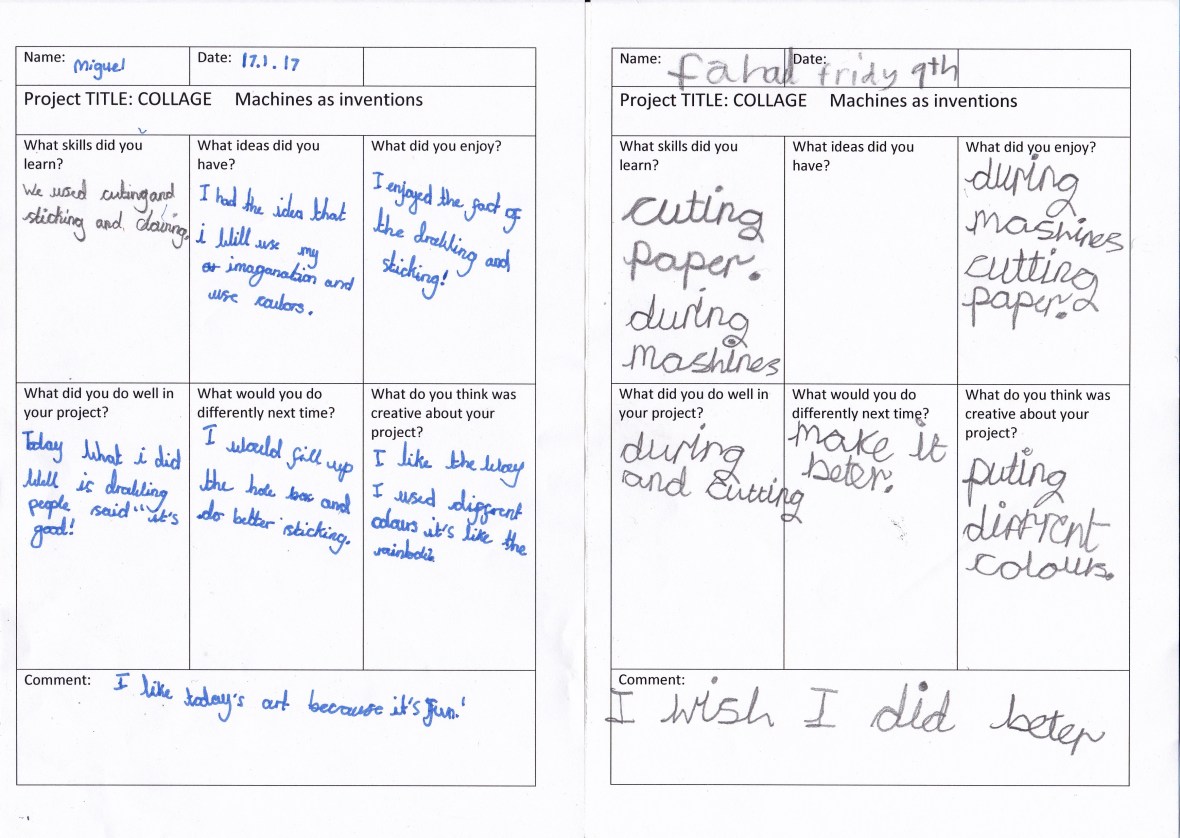 Name: Miguel
Date: 17.1.17
Project TITLE: COLLAGE Machines as inventions
What skills did you
learn?
We used cuting and
sticking and
What ideas did you
have?
I had the idea that
i will use my
imaganation and
use coulors.
What did you enjoy?
I enjoyed the fact of
the drawing and
sticking!
What did you do well in
your project?
Today what i did
well is drawing
people said "it's
good!
What would you do
differently next time?
I would fill up
the hole box and
do better sticking.
What do you think was
creative about your
project?
I like the way
I used diffrent
colours it's like the
rainbow
Comment: I like today's art because it's fun!
Name: fahad
Date: fridy 9th
Project TITLE: COLLAGE Machines as inventions
What skills did you
learn?
cuting
paper.
during
mashines
What ideas did you
have?
What did you enjoy?
during
mashines
cutting
paper.
What did you do well in
your project?
during
and cutting
What would you do
differently next time?
make it
beter.
What do you think was
creative about your
project?
puting
diffrent
colours.
Comment:
I wish I did beter